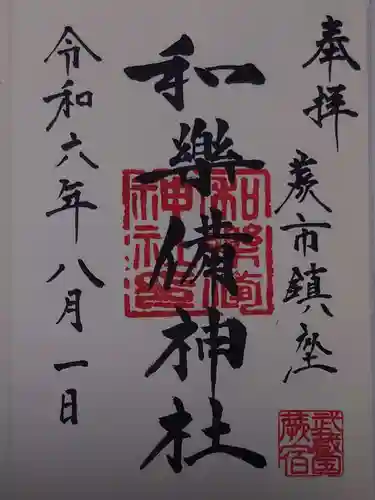 奉拝
蕨市鎮座
武蔵国
蕨宿
和樂備神社
和樂備
神社
令和六年八月一日